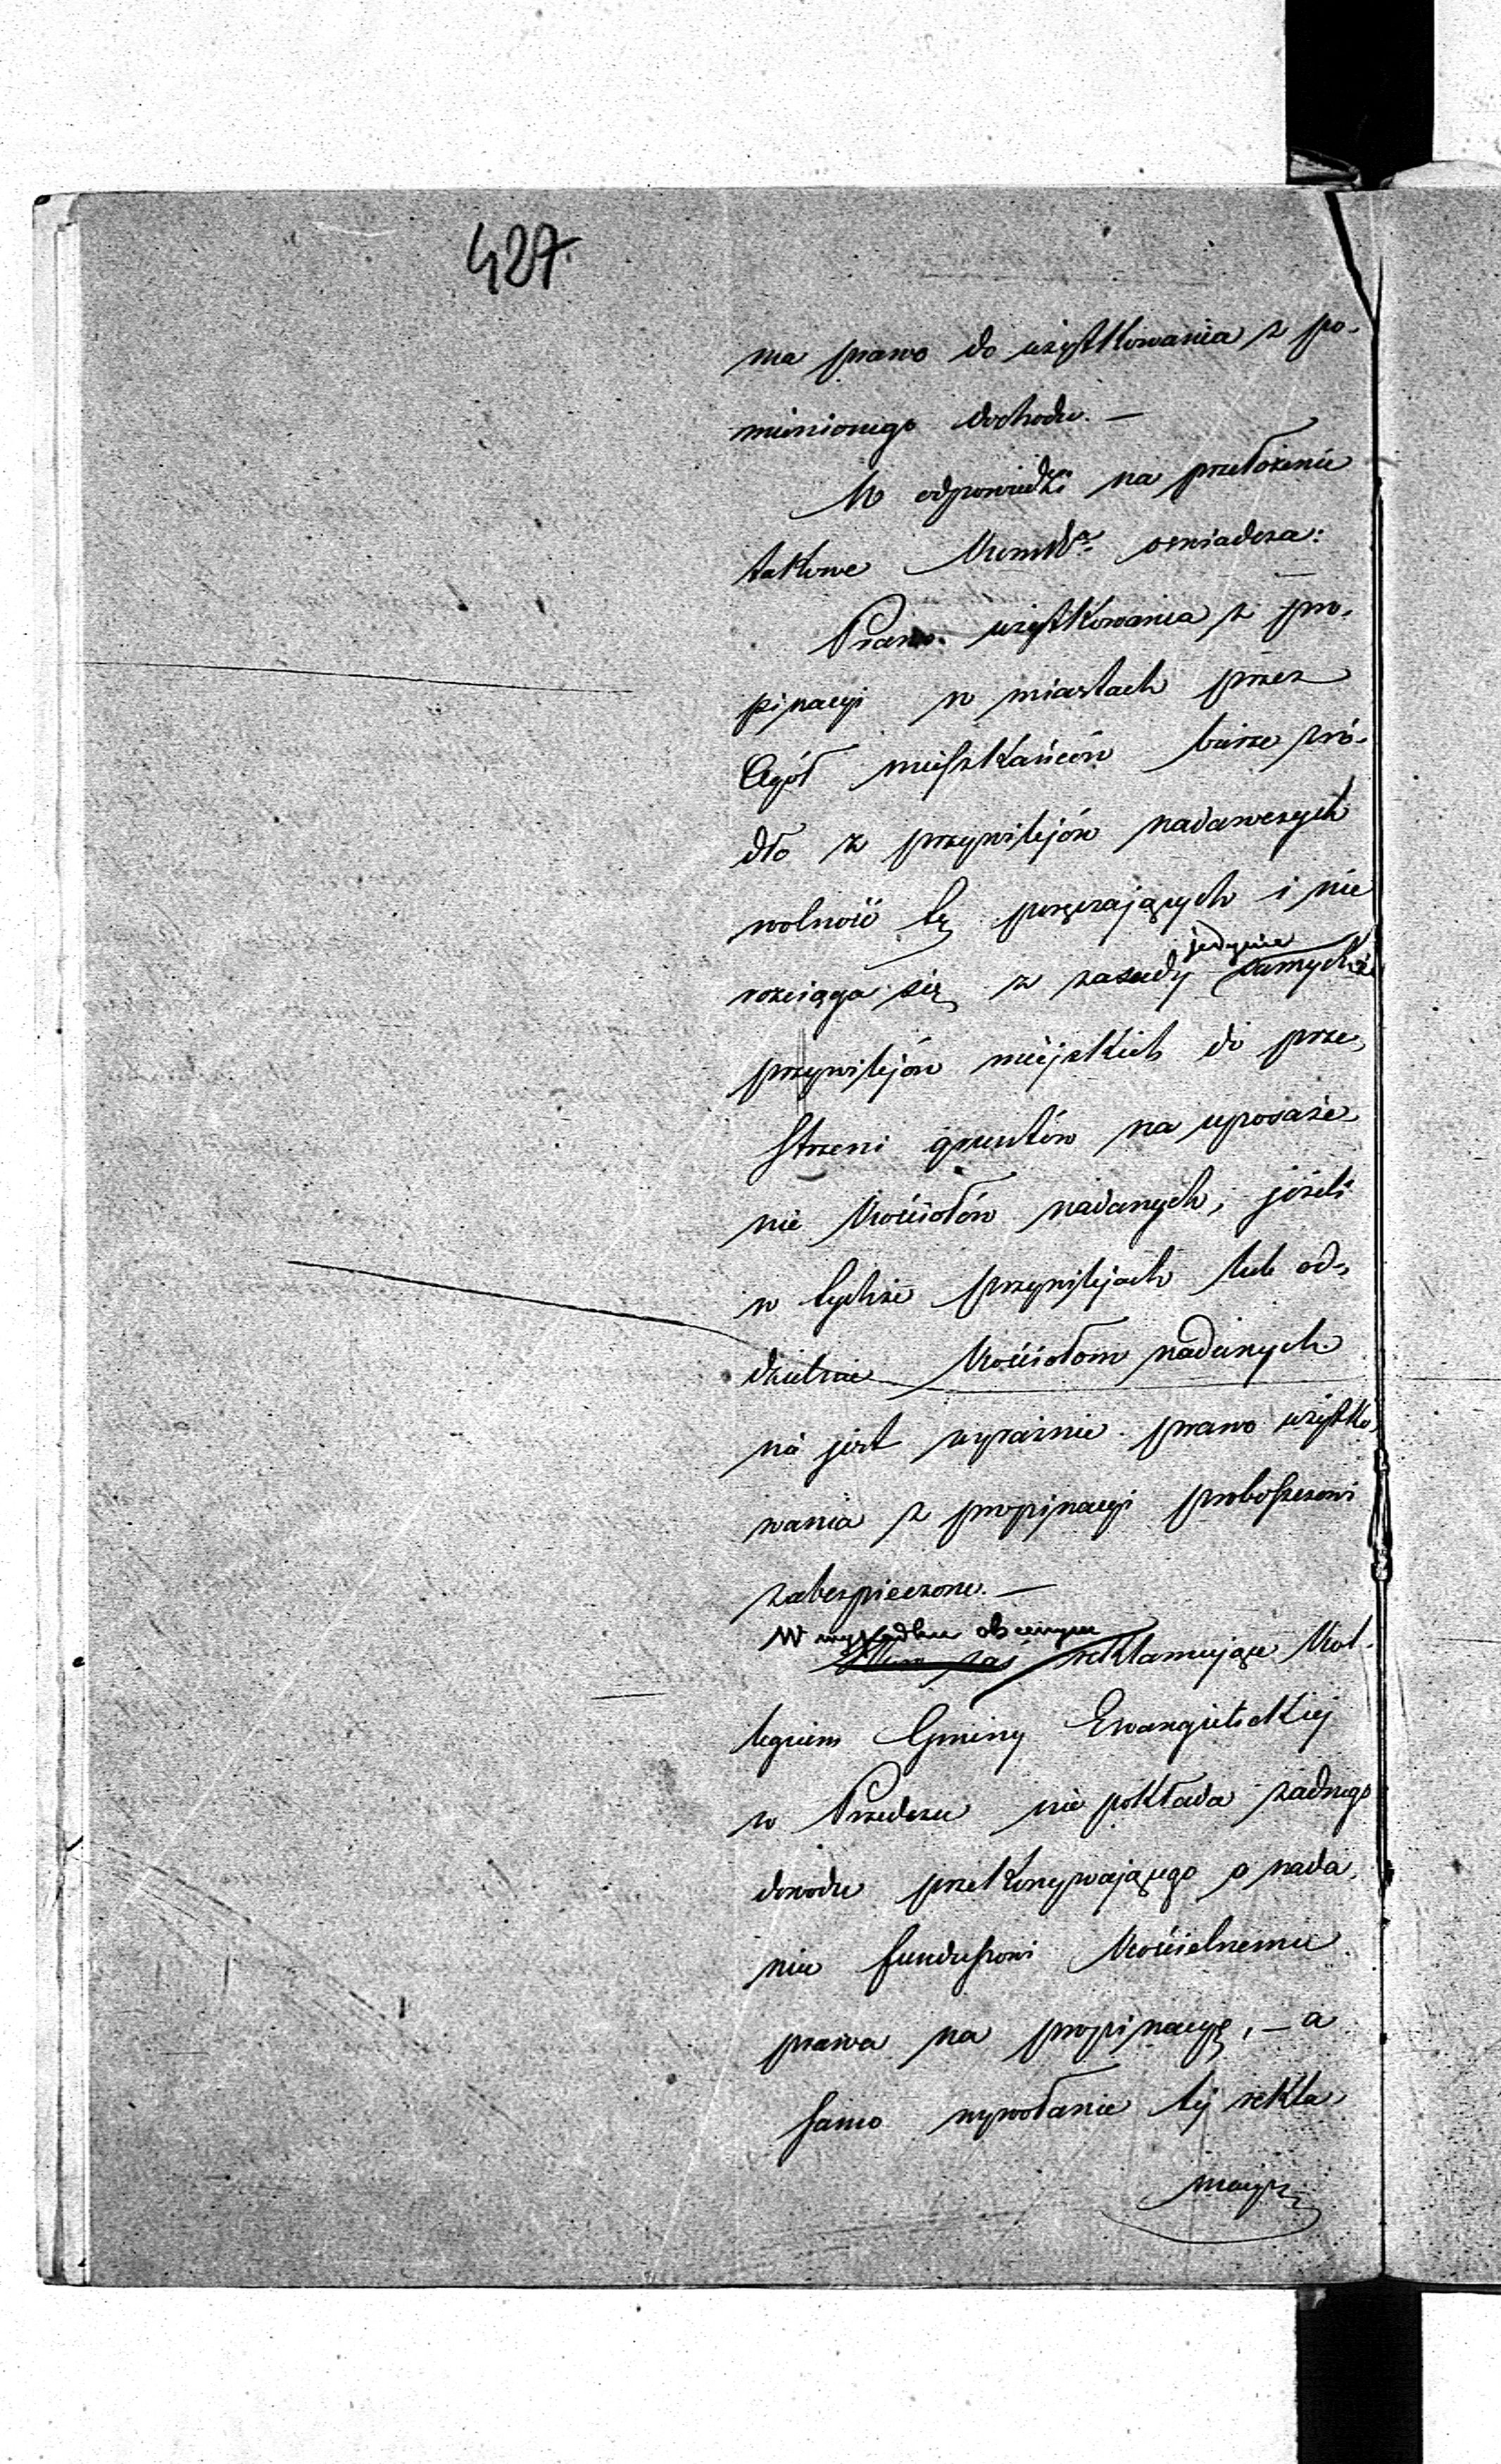 427.
ma prawo do użytkowania z po-
mienionego dochodu. —
W odpowiedzi na przełożenie
takowe oświadcza:
Prawo użytkowania z pro-
pinacyi w miastach przez
Ogół mieszkańców bierze źró-
dło z przywilejów nadawczych
wolność tę poręczających i nie
jedynie
rozciąga się z zasady samych
przywilejów miejskich do prze-
strzeni gruntów na uposaże-
nie Kościołów nadanych, jeżeli
w tychże przywilejach lub od-
dzielnie Kościołom nadanych
nie jest wyraźnie prawo użytko-
wania z propinacyi proboszczowi
zabezpieczone. —
W wypadku obecnym
zaś reklamujące Kol-
legium Gminy Ewangielickiej
w Przedczu nie pokłada żadnego
dowodu przekonywającego o nada-
niu funduszowi Kościelnemu
prawa na propinacyę, — a
samo wywołanie téj rekla-
macyi